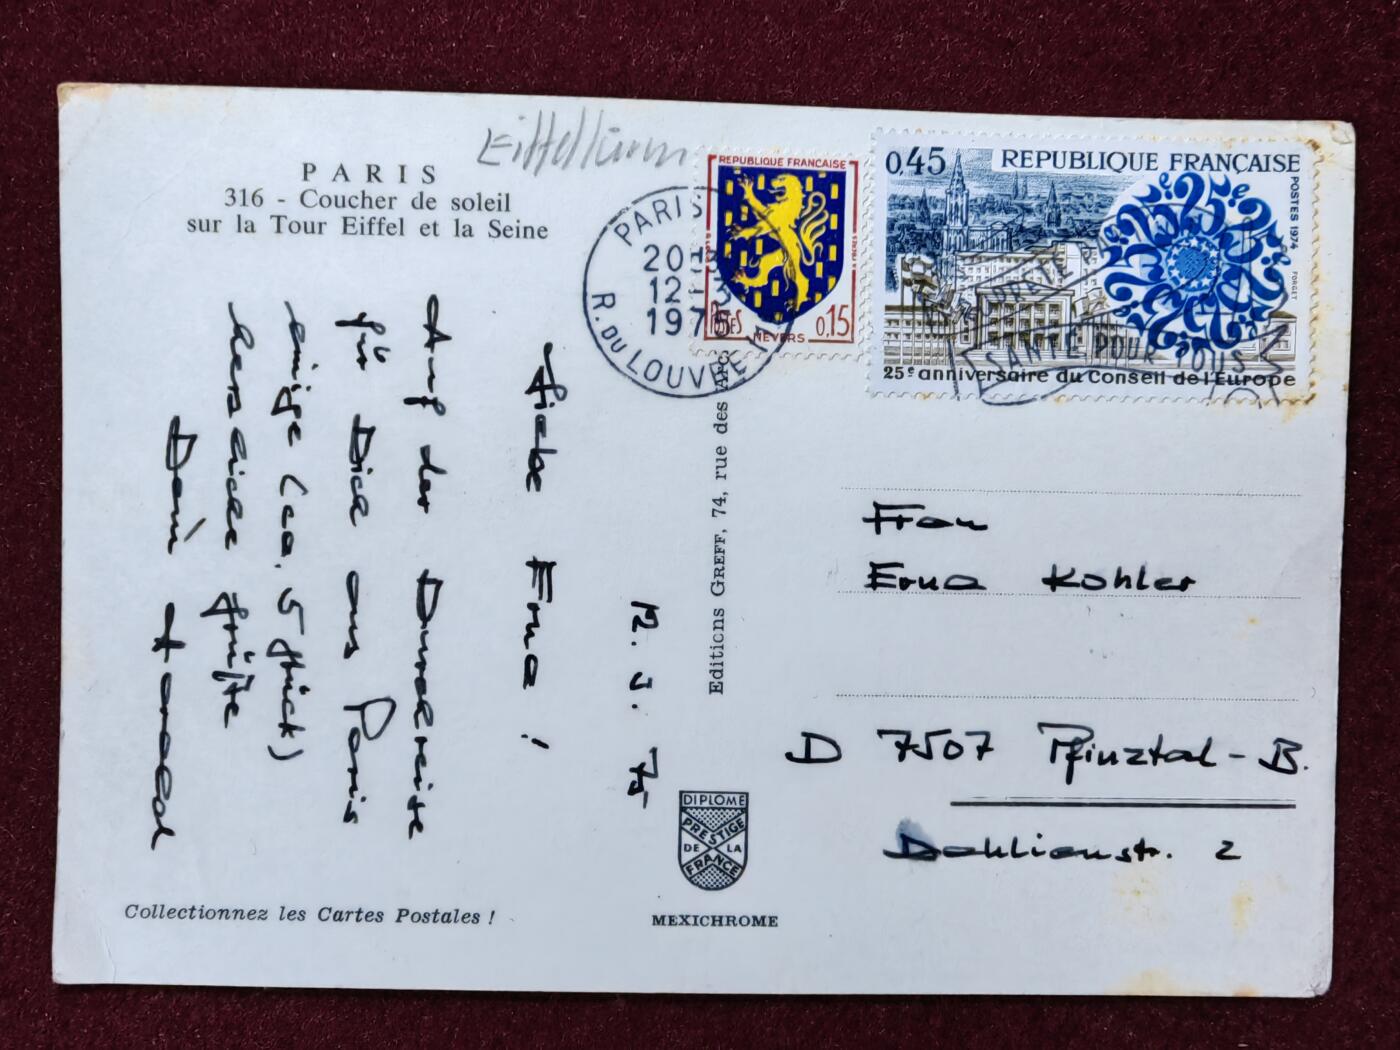 Eiffelturm
PARIS
316 - Coucher de soleil
sur la Tour Eiffel et la Seine
12. 3. 75
Liebe Erna!
Auf der Durchreise
für Dich aus Paris
einige (ca. 5 Stück)
herzliche Grüße
Dein Harald
Collectionnez les Cartes Postales !
Editions GREFF, 74, rue des Arc
DIPLOME
PRESTIGE
DE LA
FRANCE
MEXICHROME
PARIS
20H
12-3
1975
R. DU LOUVRE
REPUBLIQUE FRANÇAISE
POSTES
0,15
NEVERS
0,45 REPUBLIQUE FRANÇAISE
POSTES 1974
FORGET
25e anniversaire du Conseil de l'Europe
SANTÉ POUR TOUS
Frau
Erna Kohler
D 7507 Pfinztal-B.
Dahlienstr. 2